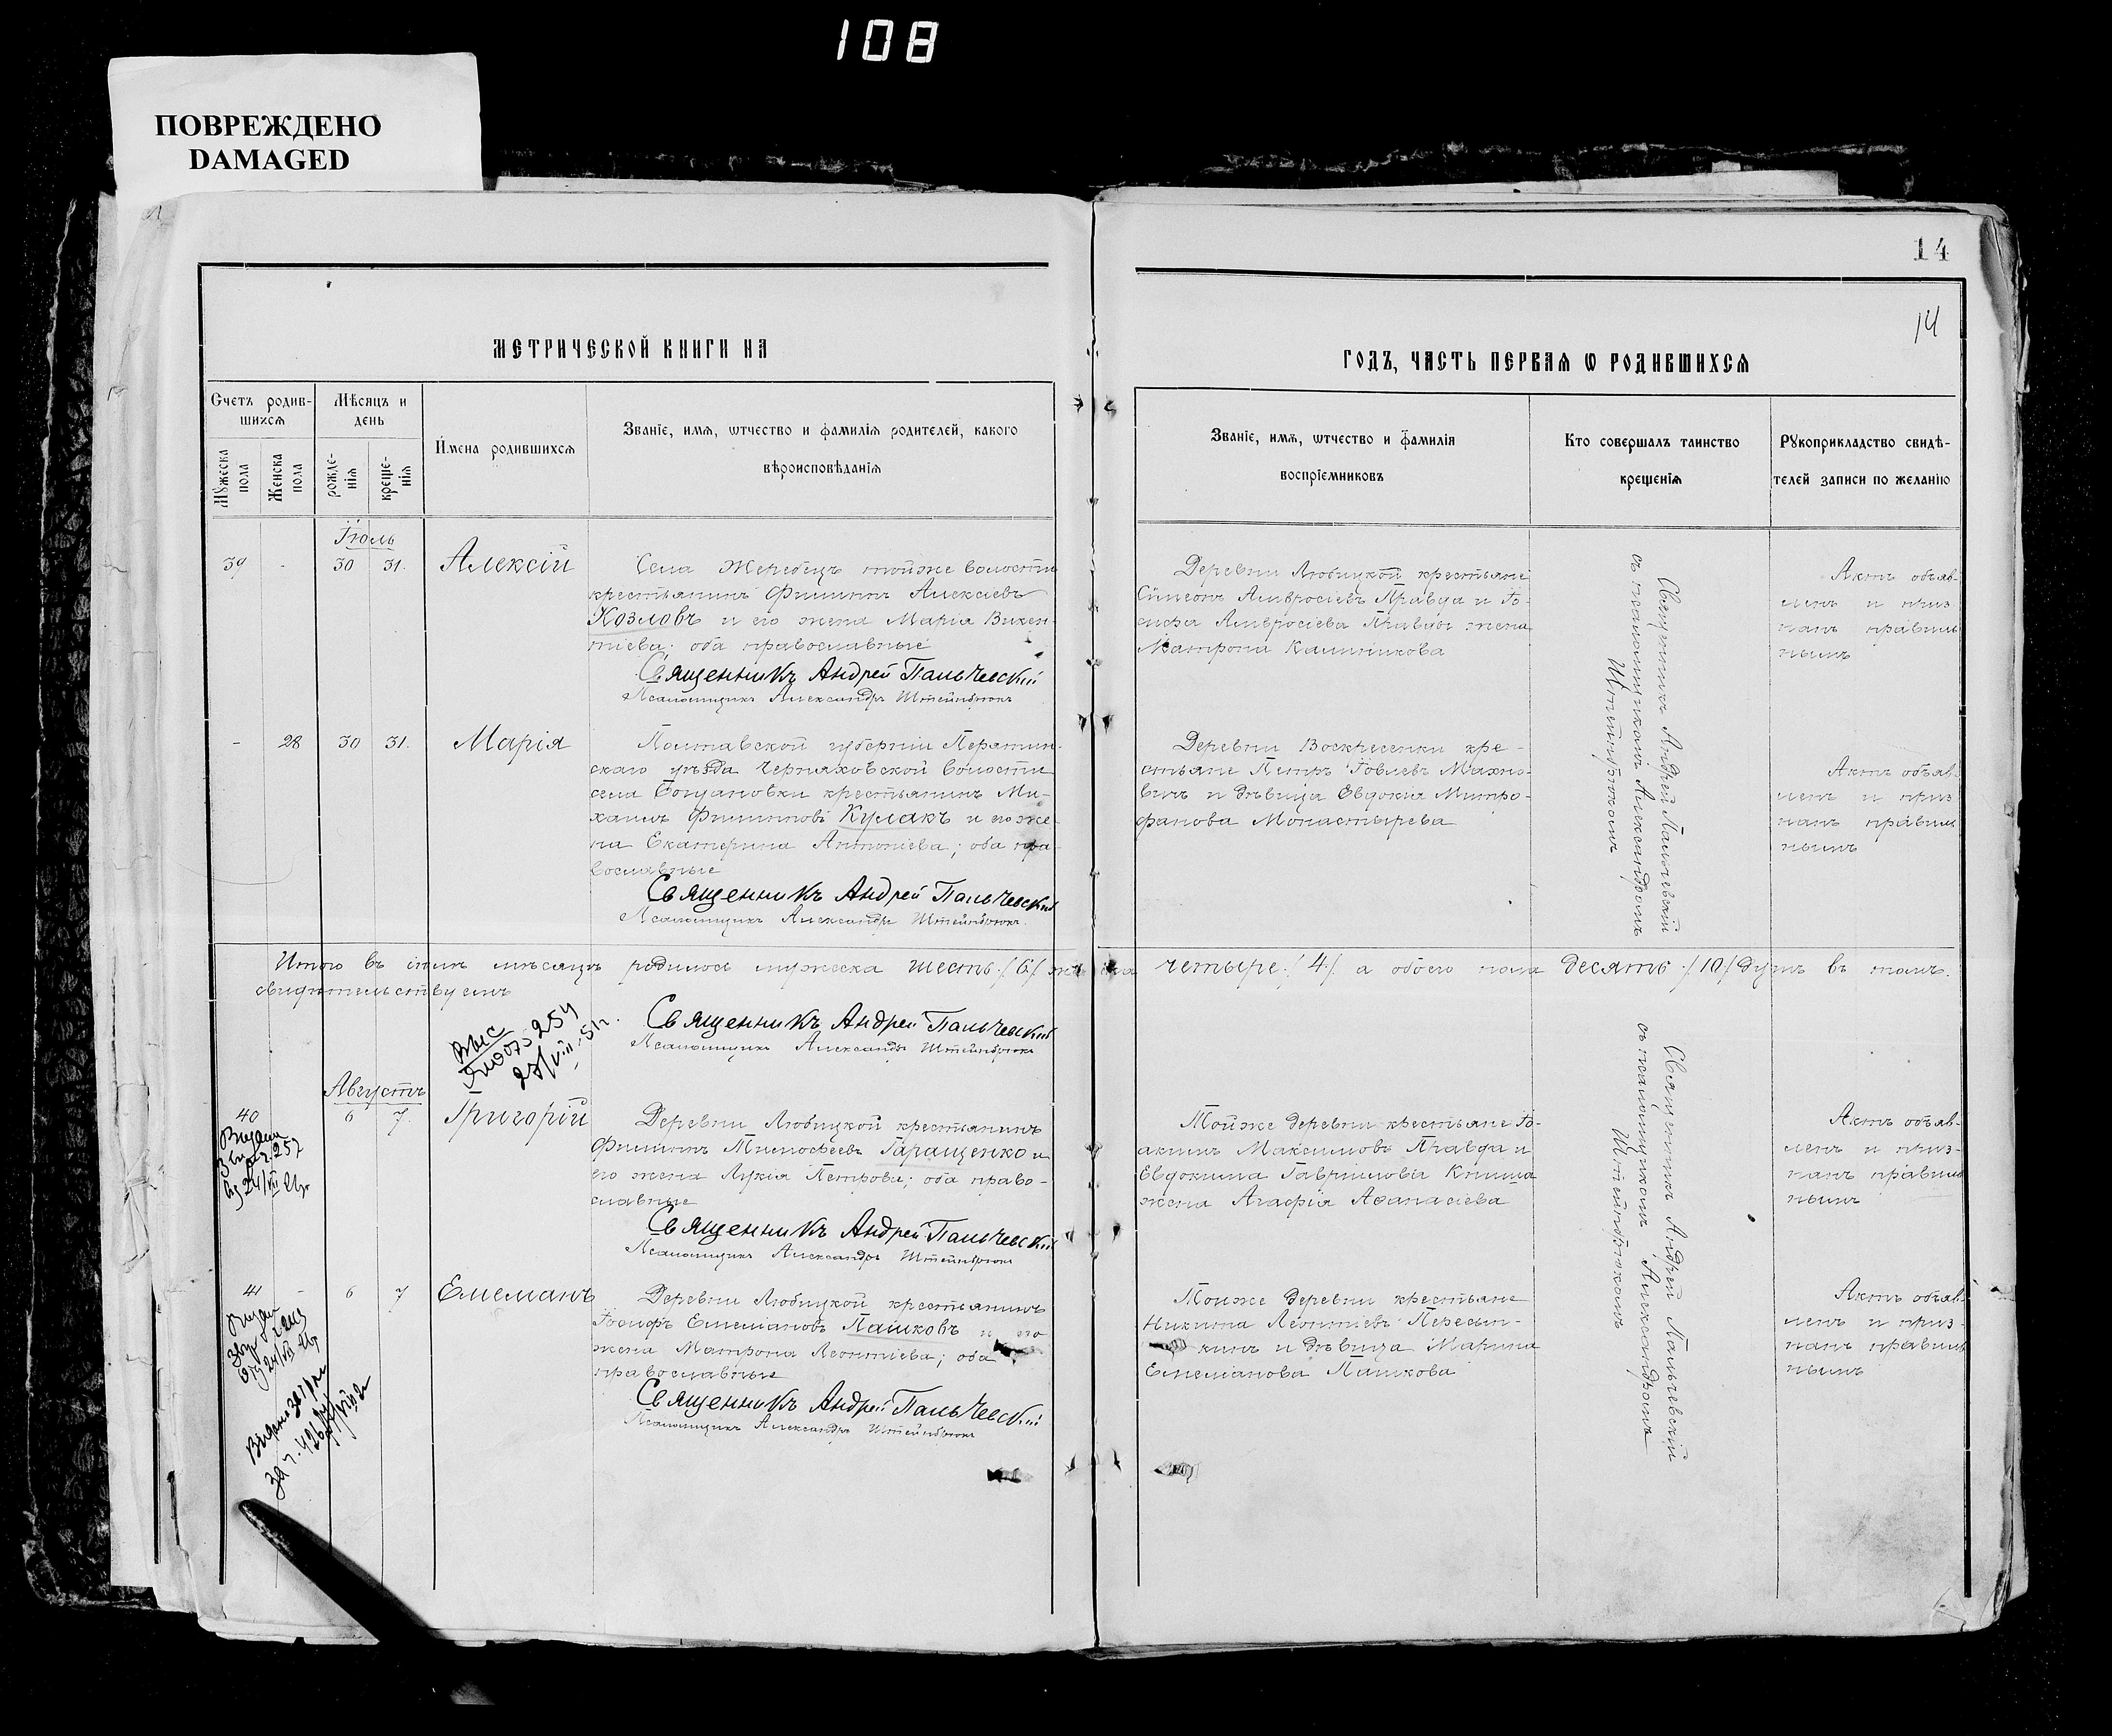 108
ПОВРЕЖДЕНО
DAMAGED
14
14
МЕТРИЧЕСКОЙ КНИГИ НА
ГОДЪ, ЧАСТЬ ПЕРВАЯ Ѡ РОДИВШИХСЯ
Счетъ родив-
шихсѧ
Мѣсяцъ и
день
Мужеска
пола
Женска
пола
рожде-
нія
креще-
нія
Имена родившихсѧ
Званіе, имѧ, ѡтчество и фамилія родителей, какого
вѣроисповѣданіѧ
Званіе, имѧ, ѡтчество и фамилія
воспріемниковъ
Кто совершалъ таинство
крещеніѧ
Рукоприкладство свидѣ-
телей записи по желанію
Іюль
39
-
30
31.
Алексій
Села Жеребецъ тойже волости
крестьянинъ Филиппъ Алексіевъ
Козловъ и его жена Марія Викен-
тіева; оба православные
Священникъ Андрей Пальчевскій
Псаломщикъ Александръ Штейнбрюкъ
Деревни Любицкой крестьяне
Симеонъ Амвросіевъ Правда и Іо-
сифа Амвросіева Правды жена
Матрона Калинникова
Священникъ Андрей Пальчевскій
съ псаломщикомъ Александромъ
Штейнбрюкомъ
Актъ объяв-
ленъ и приз-
нанъ правиль
нымъ
-
28
30
31.
Марія
Полтавской губерніи Пирятин-
скаго уѣзда Черняховской волости
села Богдановки крестьянинъ Ми-
хаилъ Филипповъ Кулакъ и его же-
на Екатерина Антоніева; оба пра-
вославные
Священникъ Андрей Пальчевскій
Псаломщикъ Александръ Штейнбрюкъ
Деревни Воскресенки кре-
стьяне Петръ Іовлевъ Махно-
вичъ и дѣвица Евдокія Митро-
фанова Монастырева
Актъ объяв-
ленъ и приз
нанъ правиль
нымъ
Итого въ семъ мѣсяцѣ родилось мужеска шесть /6/ женска четыре /4/ а обоего пола десять /10/ душъ въ томъ
свидѣтельствуемъ
Священникъ Андрей Пальчевскій
Псаломщикъ Александръ Штейнбрюкъ
254
Августъ
40
6
7.
Григорій
257
Деревни Любицкой крестьянинъ
Филиппъ Тимофеевъ Гаращенко и
его жена Лукія Петрова; оба право-
славные
Священникъ Андрей Пальчевскій
Псаломщикъ Александръ Штейнбрюкъ
Тойже деревни крестьяне Іо-
акимъ Максимовъ Правда и
Евдокима Гавріилова Книша
жена Агафія Аѳанасіева
Священникъ Андрей Пальчевскій
съ псаломщикомъ Александромъ
Штейнбрюкомъ
Актъ объяв-
ленъ и приз-
нанъ правиль
нымъ
41
-
6
7
Емеліанъ
Деревни Любицкой крестьянинъ
Іосифъ Емеліановъ Пашковъ и его
жена Матрона Леонтіева; оба
православные
Священникъ Андрей Пальчевскій
Псаломщикъ Александръ Штейнбрюкъ
Тойже деревни крестьяне
Никита Леонтіевъ Пересып-
кинъ и дѣвица Марина
Емеліанова Пашкова
Актъ объяв-
ленъ и приз-
нанъ правиль
нымъ